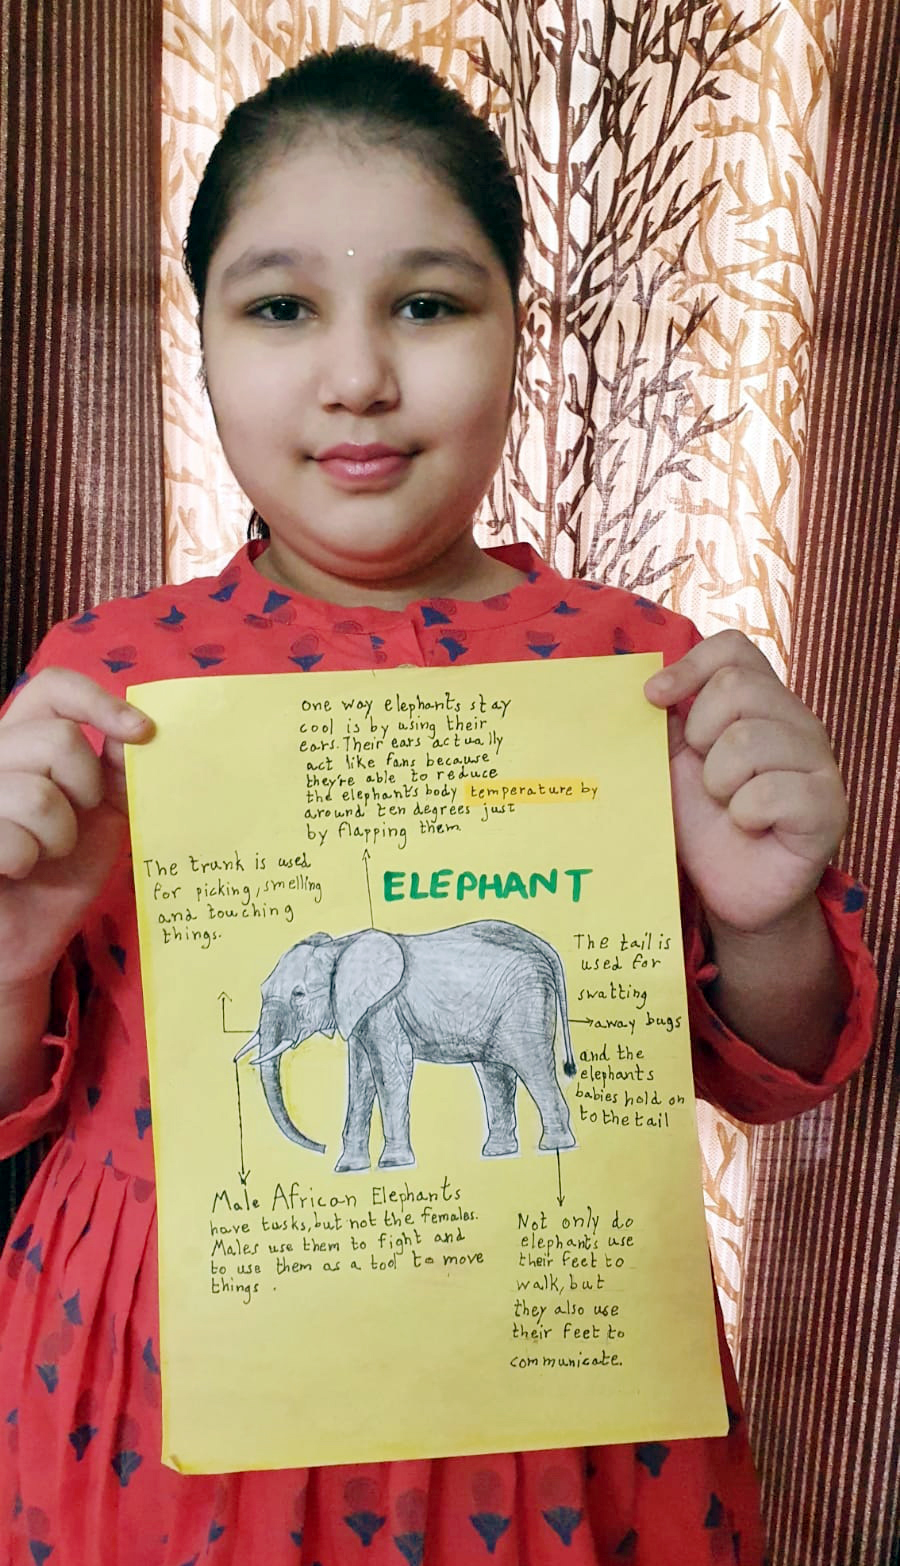 One way elephants stay
cool is by using their
ears. Their ears actually
act like fans because
they're able to reduce
the elephant's body temperature by
around ten degrees just
by flapping them.
The trunk is used
for picking, smelling
and touching
things.
ELEPHANT
The tail is
used for
swatting
away bugs
and the
elephants
babies hold on
to the tail
Male African Elephants
have tusks, but not the females.
Males use them to fight and
to use them as a tool to move
things.
Not only do
elephants use
their feet to
walk, but
they also use
their feet to
communicate.